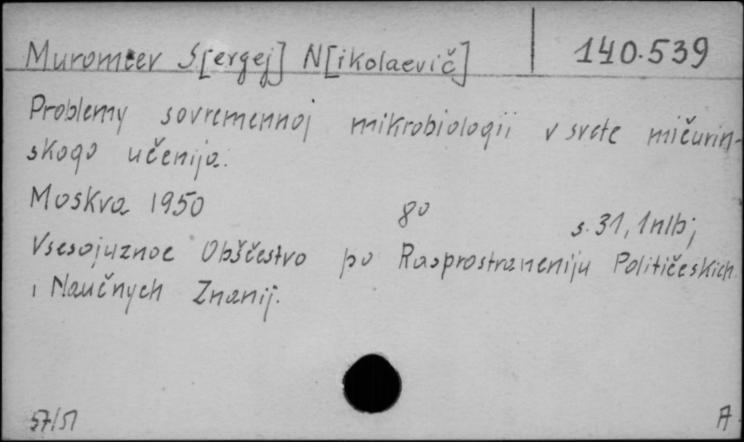 Muromcev S[ergej] N[ikolaevič] 140.539
Problemy sovremennoj mikrobiologii v svete mičurin-
skogo učenija.
Moskva 1950 8° s. 31, 1nlb;
Vsesojuznoe Obščestvo po Rasprostraneniju Političeskich
i Naučnych Znanij.
57/51 A